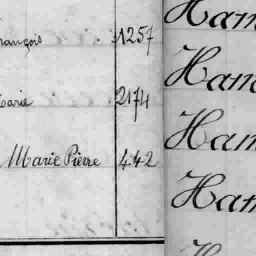 rançois 1257 Ham
Marie 2174 Ham
Marie Pierre 442 Ham
Ham